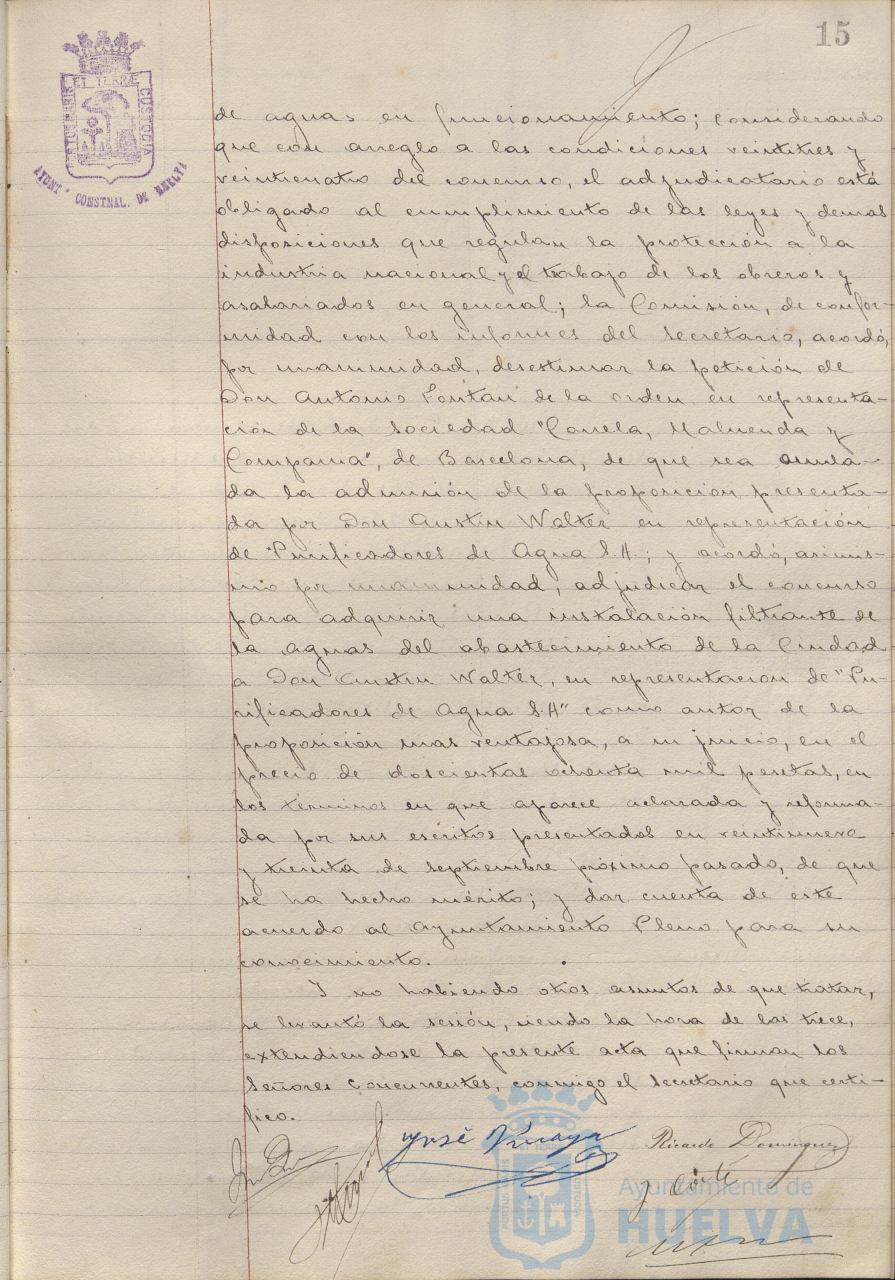 15
PORTUS MARIS ET TERRÆ CUSTODIA
AYUNT° CONSTNAL. DE HUELVA
de aguas en funcionamiento; considerando
que con arreglo a las condiciones veintitres y
veinticuatro del concurso, el adjudicatario está
obligado al cumplimiento de las leyes y demas
disposiciones que regulan la protección a la
industria nacional y el trabajo de los obreros y
asalariados en general; la Comisión, de confor-
midad con los informes del Secretario, acordó,
por unanimidad, desestimar la petición de
Don Antonio Fontán de la orden en representa-
ción de la Sociedad "Canela, Maluenda y
Compañia", de Barcelona, de que sea anula-
da la admisión de la proposición presenta-
da por Don Austin Walter en representación
de "Purificadores de Agua S.A; y acordó, asimis-
mo por unanimidad, adjudicar el concurso
para adquirir una instalación filtrante de
la aguas del abastecimiento de la Ciudad
a Don Austin Walter, en representación de "Pu-
rificadores de Agua S.A" como autor de la
proposición mas ventajosa, a su juicio, en el
precio de doscientas ochenta mil pesetas, en
los términos en que aparece aclarada y reforma-
da por sus escritos presentados en veintinueve
y treinta de septiembre próximo pasado, de que
se ha hecho mérito; y dar cuenta de este
acuerdo al Ayuntamiento Pleno para su
conocimiento.
Y no habiendo otros asuntos de que tratar,
se levantó la sesión, siendo la hora de las trece,
extendiendose la presente acta que firman los
Señores Concurrentes, conmigo el Secretario que certi-
fico.
José Ricardo Dominguez
J Corte
Ayuntamiento de
HUELVA